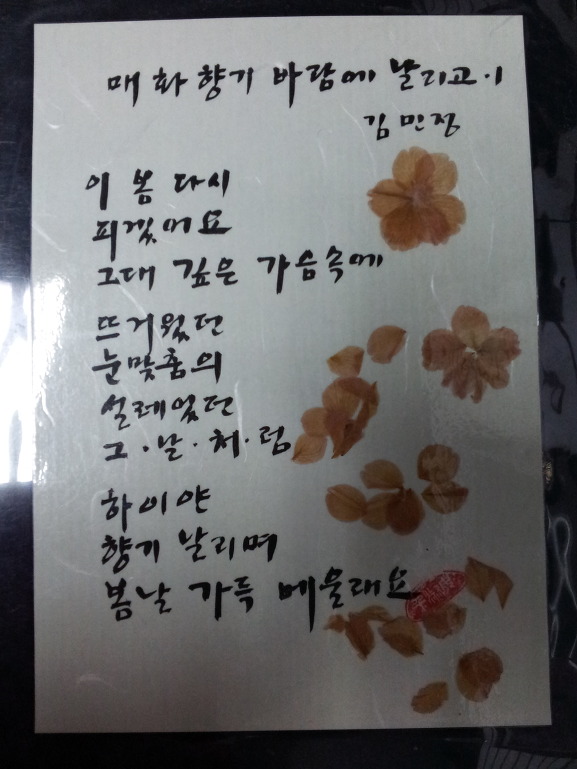 매화향기 바람에 날리고·1
김민정
이 봄 다시
피겠어요
그대 깊은 가슴속에
뜨거웠던
눈맞춤의
설레었던
그·날·처·럼
하이얀
향기 날리며
봄날 가득 메울래요